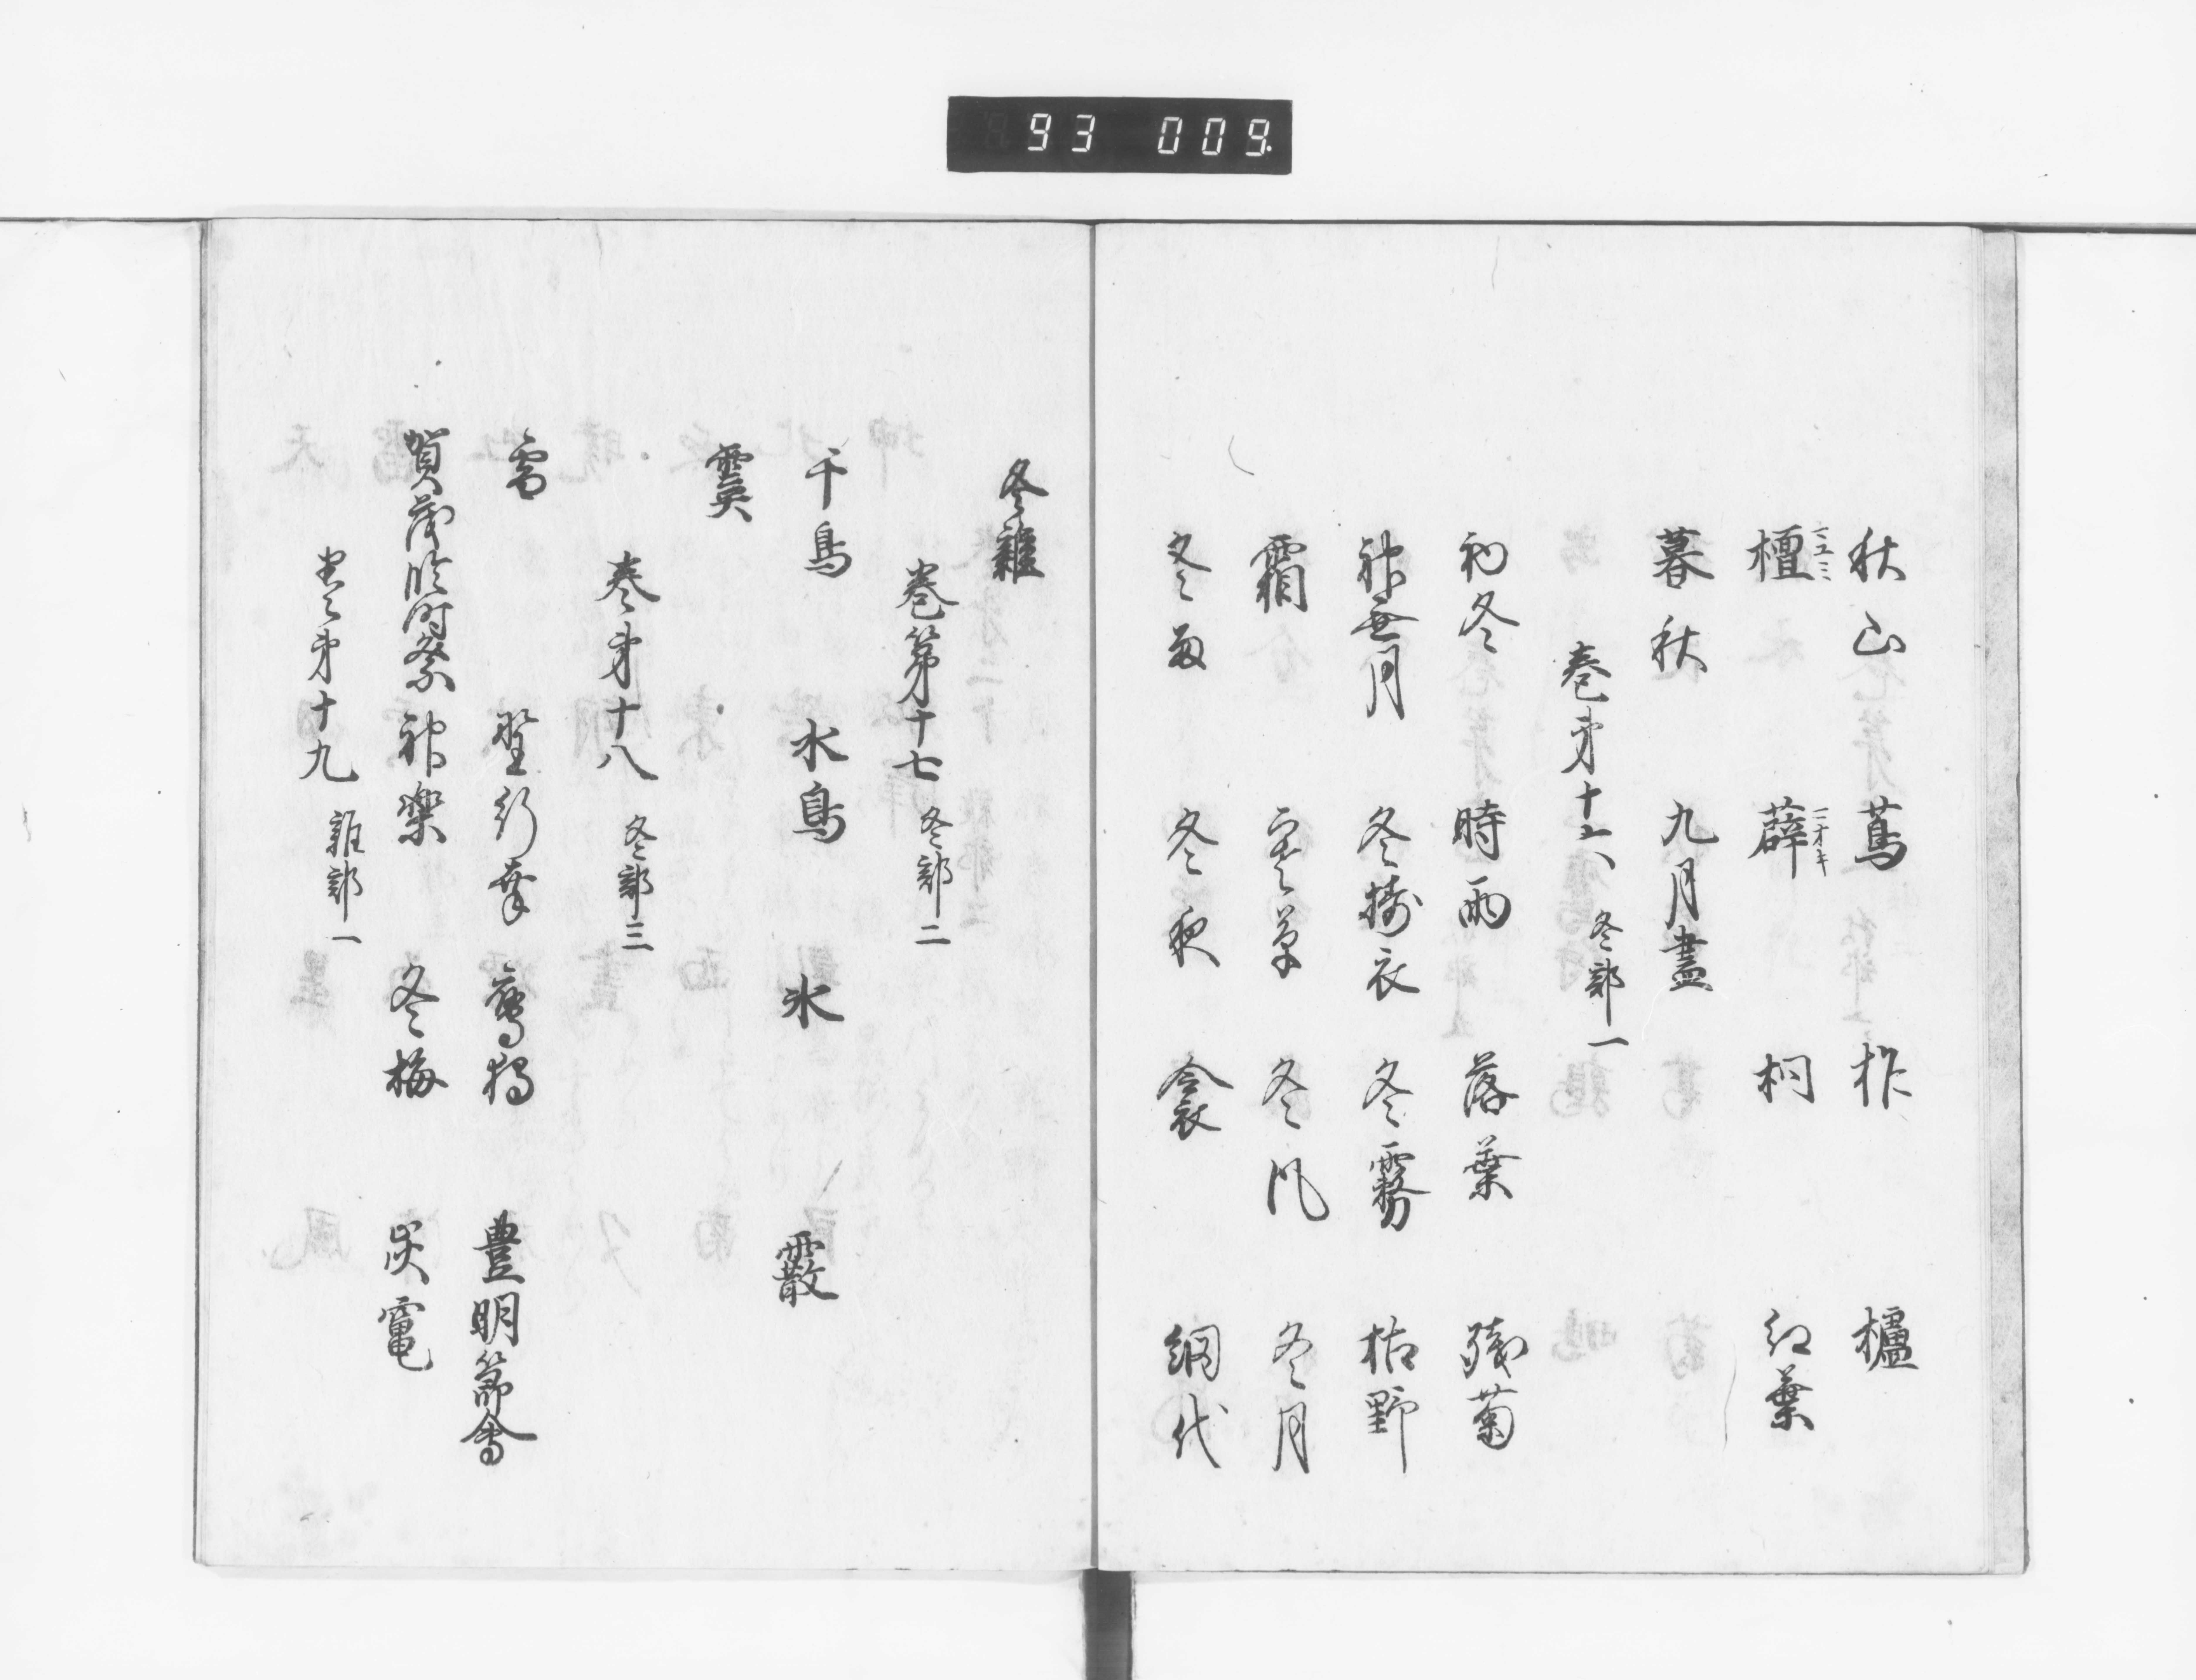 93 009.
秋山 蔦 柞 櫨
檀 薜 桐 紅葉
暮秋 九月盡
巻第十六 冬部一
初冬 時雨 落葉 残菊
神無月 冬擣衣 冬霧 枯野
霜 寒草 冬風 冬月
冬雨 冬夜 衾 網代
冬雜
巻第十七 冬部二
千鳥 水鳥 氷 霰
霙
巻第十八 冬部三
雪 野行幸 鷹狩 豊明節會
賀茂臨時祭 神樂 冬梅 炭竈
巻第十九 雜部一